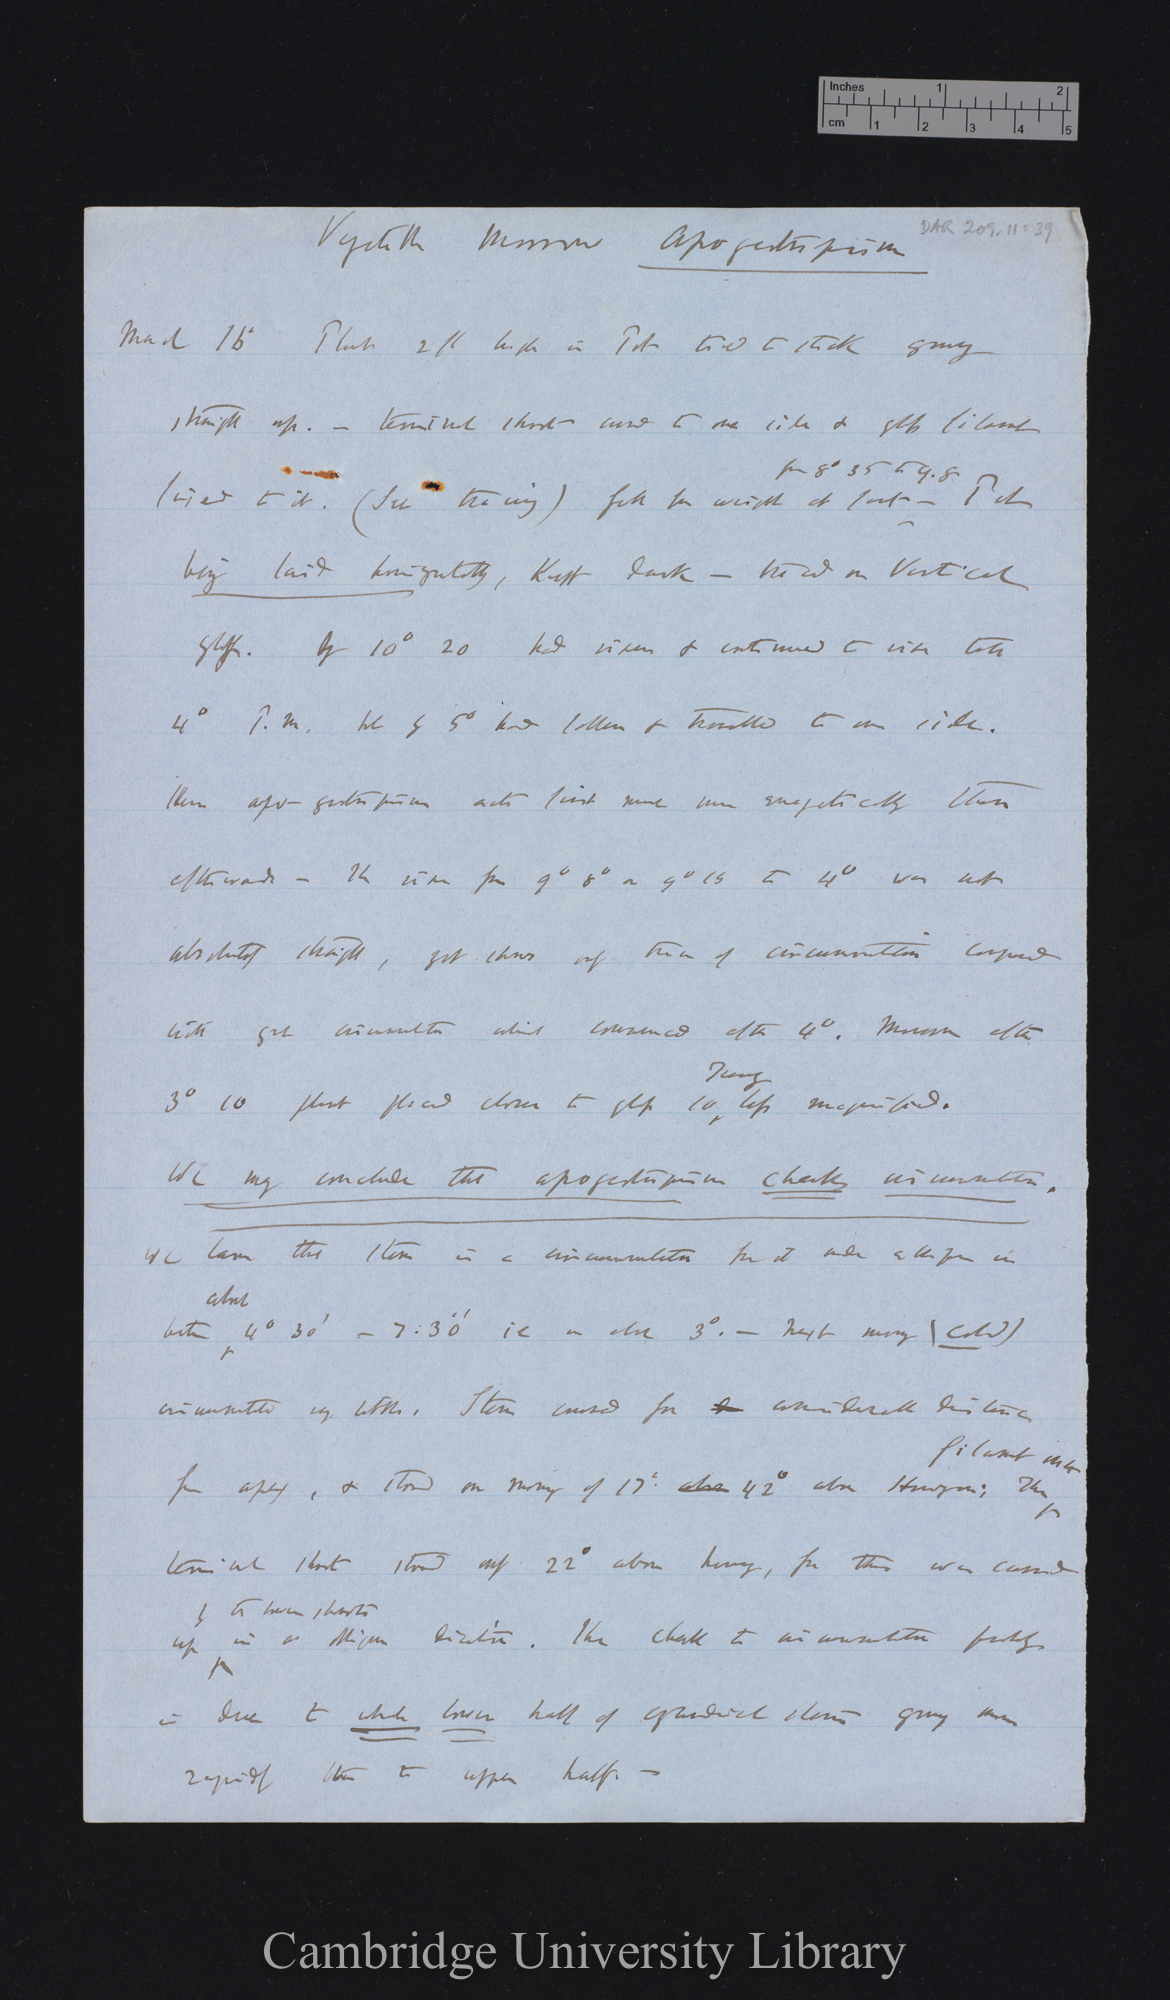 Inches 1 2
cm 1 2 3 4 5
DAR 209.11: 39
Apogeotropism
March 16° Plant 2 ft high in Pot tied to stick growing
straight up. — terminal shoot to one side & glass filament
fixed to it. (See tracing) fell from weight at first — Pot
from 8° 35 to 9.8
being laid horizontally, Kept dark — traced on Vertical
glass. By 10° 20 had risen & continued to rise till
4° P.M. but by 5° had fallen & travelled to one side.
Hence apo-geotropism acts first much more energetically than
afterwards — The rise from 9° 8° or 9° 15 to 4° was not
absolutely straight, yet shows only trace of circumnutation compared
with great circumnutation which commenced after 4°. Movement after
3° 10 plant placed closer to glass 10 less magnified.
We may conclude that apogeotropism checks circumnutation.
We know that stem is a circumnutator for it made ellipse in
about
between 4° 30' – 7:30' ie in about 3°. — Next morning (cold)
circumnutated very little. Stem curved for considerable distance
from apex, & stood on morning of 17° 42° above Horizon; The
filament
terminal shoot stood only 22° above horizon, for this was
up in a oblique direction. The check to circumnutation probably
is due to whole lower half of cylindrical stem growing more
rapidly than the upper half. —
Cambridge University Library